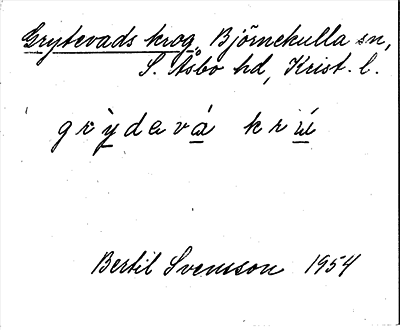 Grytevads krog, Björnekulla sn,
S. Åsbo hd, Krist. l.
grỳdavá krú
Bertil Svensson 1954